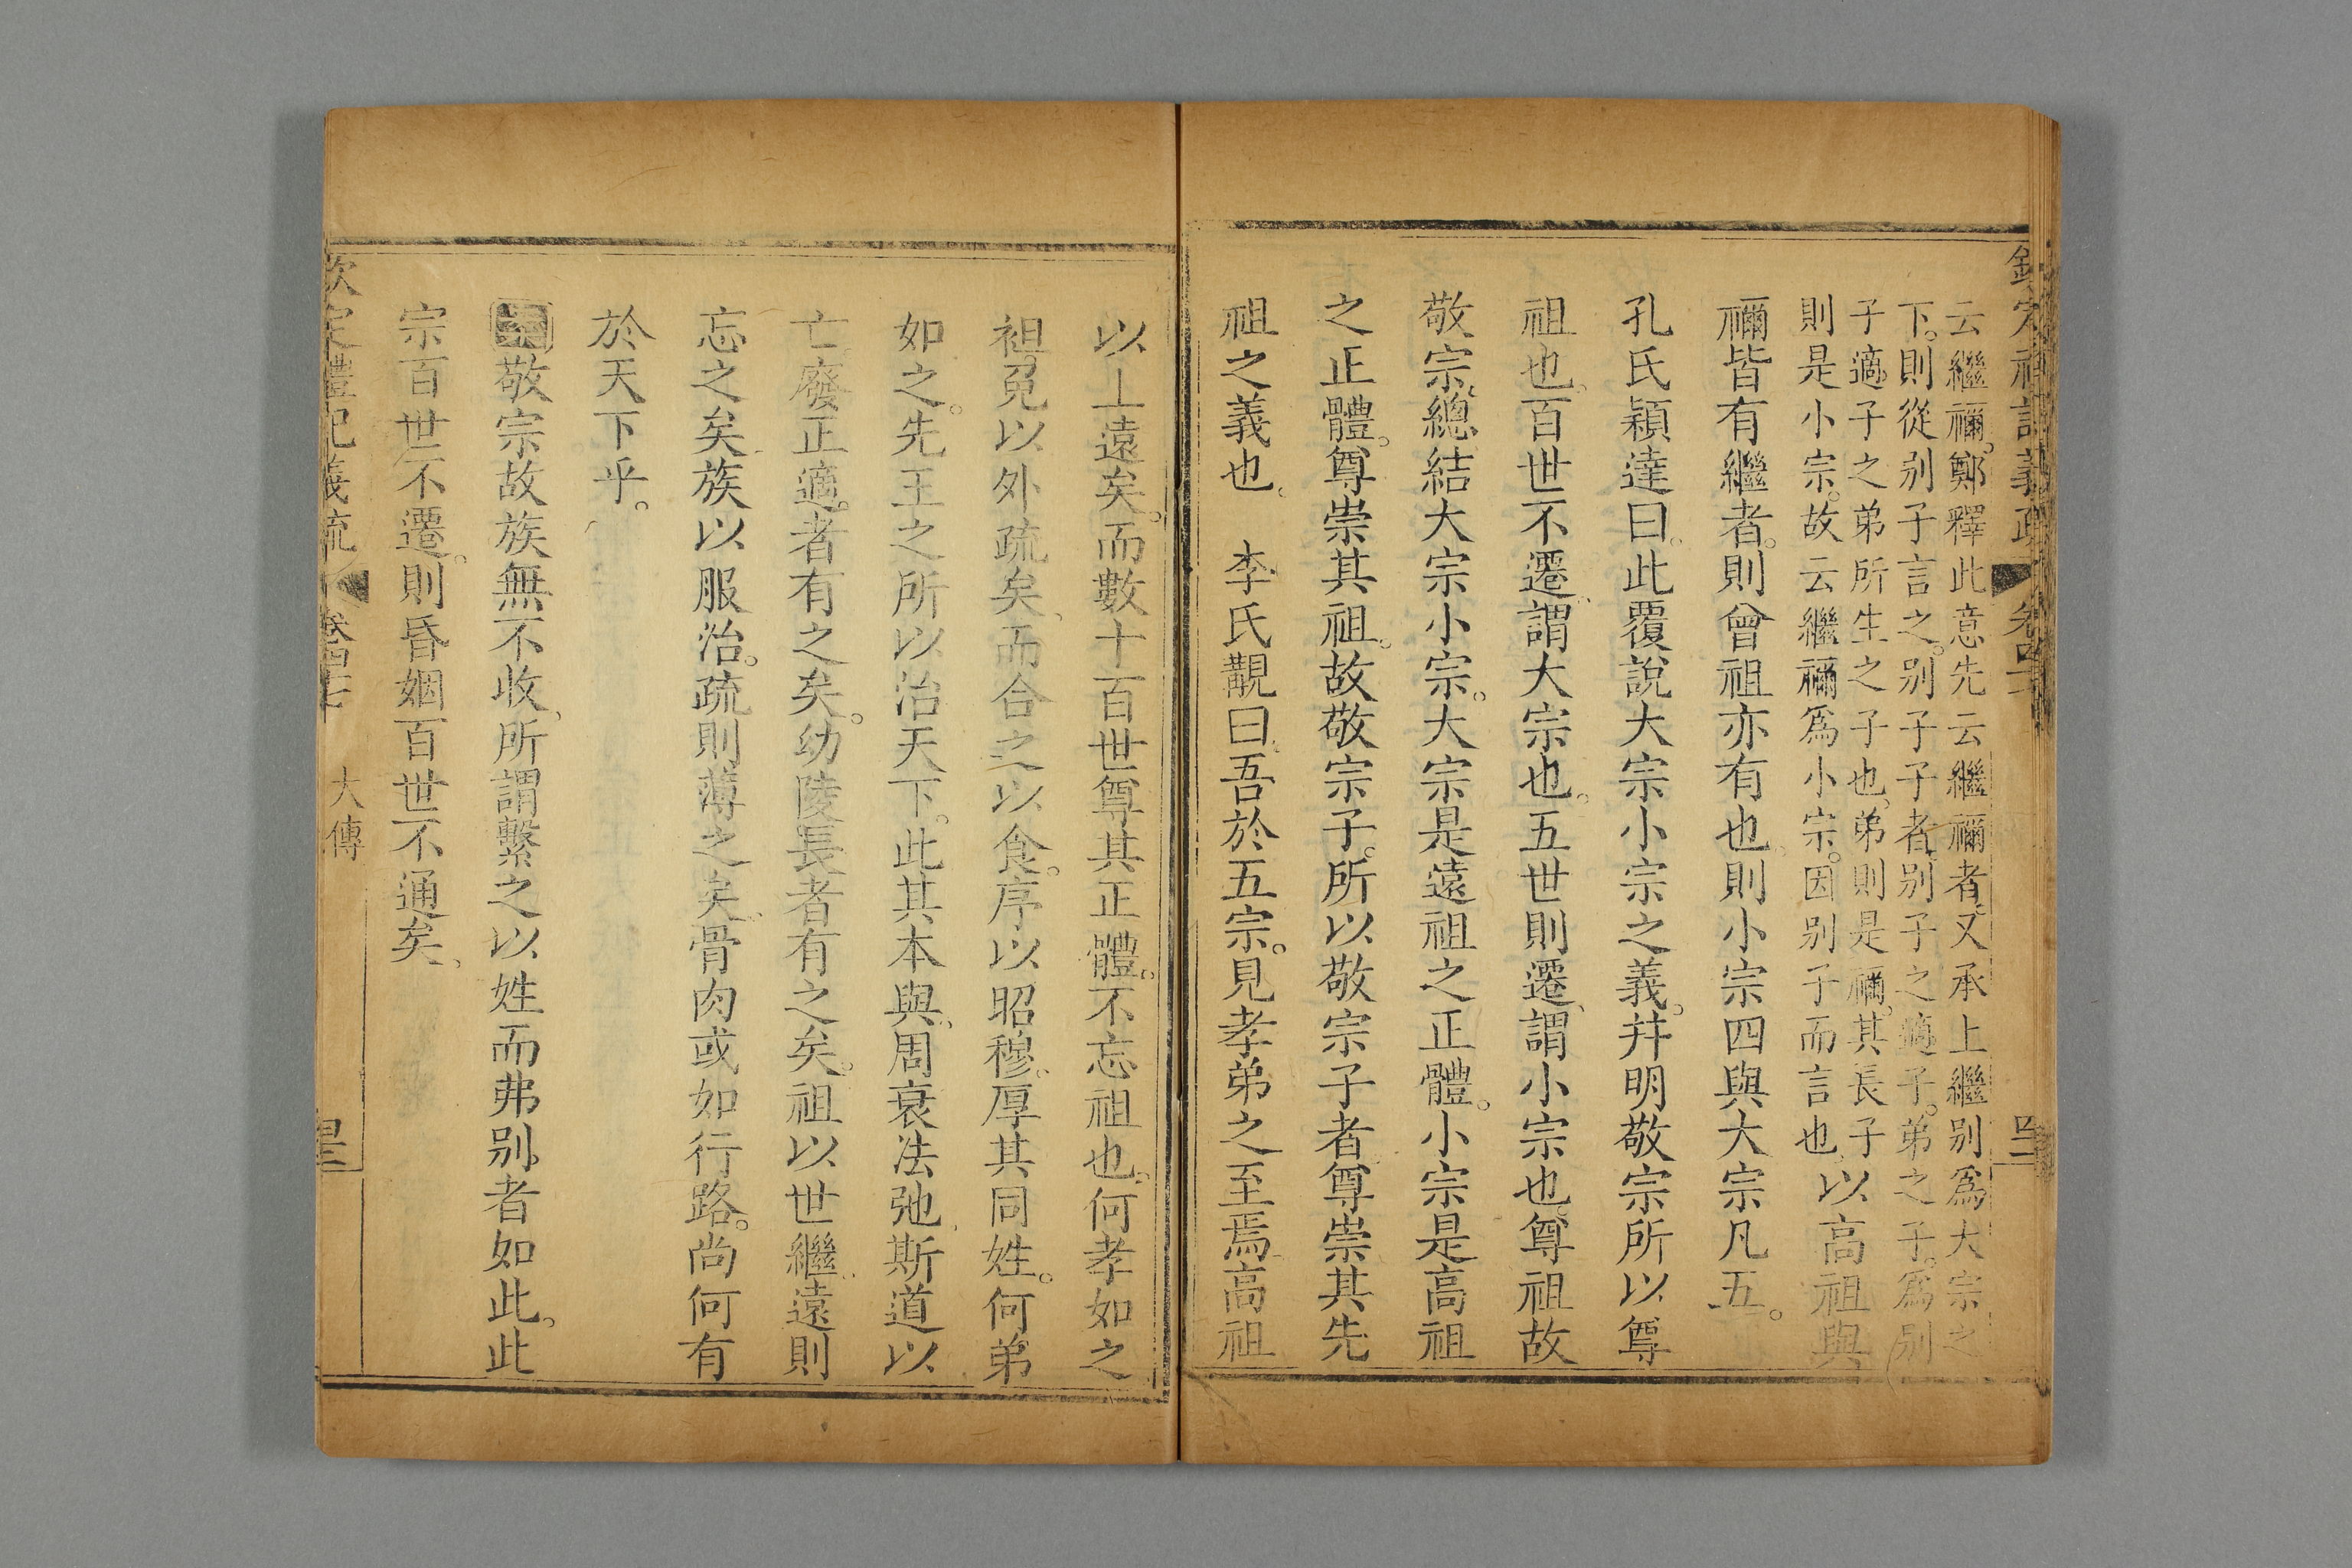 云繼禰。鄭釋此意先云繼禰者又承上繼别爲大宗之
下。則從别子言之。别子子者、别子之適子。弟之子。爲别
子適子之弟所生之子也、弟則是禰。其長子
則是小宗。故云繼禰爲小宗。因别子而言也。以高祖與
禰皆有繼者。則曾祖亦有也、則小宗四與大宗凡五。
孔氏穎達曰。此覆說大宗小宗之義。幷明敬宗所以尊
祖也。百世不遷、謂大宗也。五世則遷、謂小宗也。尊祖故
敬宗、總結大宗小宗。大宗是遠祖之正體。小宗是高祖
之正體。尊崇其祖。故敬宗子。所以敬宗子者、尊崇其先
祖之義也。 李氏觀曰、吾於五宗。見孝弟之至焉。高祖
以上遠矣。而數十百世尊其正體。不忘祖也。何孝如之
袒免以外疏矣、而合之以食。序以昭穆。厚其同姓。何弟
如之。先王之所以治天下。此其本與、周衰法弛、斯道以
亡。廢正適。者有之矣。幼陵長者有之矣。祖以世繼、遠則
忘之矣、族以服治。疏則薄之矣、骨肉或如行路。尚何有
於天下乎。
敬宗故族無不收、所謂繫之以姓而弗别者如此。此
宗百世不遷。則昏姻百世不通矣、
欽定禮記義疏 卷四十七 大傳